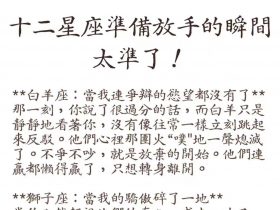 十二星座準備放手的瞬間
太準了！
**白羊座：當我連爭辯的慾望都沒有了**
那一刻，你說了很過分的話，而白羊只是
靜靜地看著你，沒有像往常一樣立刻跳起
來反駁。他們心裡那團火"噗"地一聲熄滅
了。不爭不吵，就是放棄的開始。他們連
贏都懶得贏了，只想轉身離開。
**獅子座：當我的驕傲碎了一地**